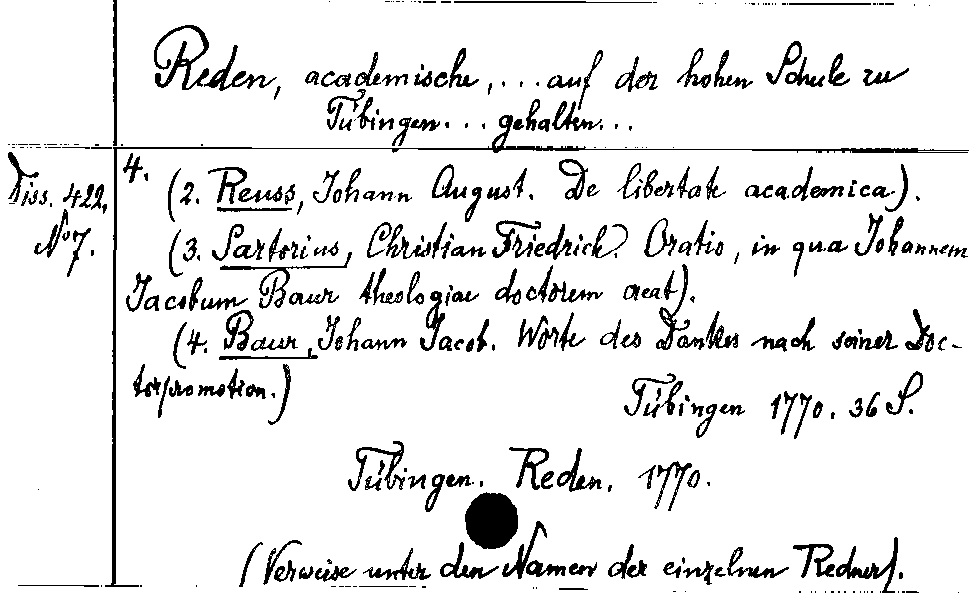 Reden, academische, ... auf der hohen Schule zu
Tübingen ... gehalten ...
Diss. 422.
No 7.
4.
(2. Reuss, Johann August. De libertate academica).
(3. Sartorius, Christian Friedrich. Oratio, in qua Johannem
Jacobum Baur theologiae doctorem creat).
(4. Baur, Johann Jacob. Worte des Dankes nach seiner Doc-
torpromotion.)
Tübingen 1770. 36 S.
Tübingen. Reden. 1770.
(Verweise unter den Namen der einzelnen Redner).